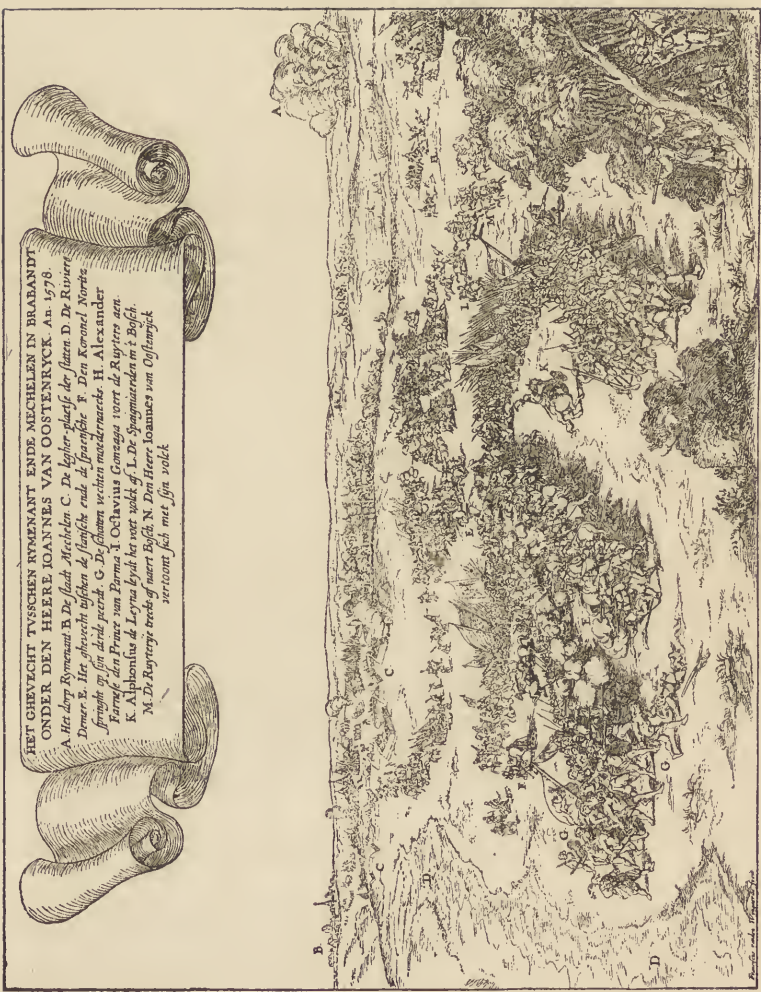 HET GHEVECHT TVSSCHEN RYMENANT ENDE MECHELEN IN BRABANDT
ONDER DEN HEERE IOANNES VAN OOSTENRYCK. An. 1578.
A. Het dorp Rymenant. B. De stadt Mechelen. C. De legher-plaetse der staten. D. De Riviere
Demer. E. Het ghevecht tusschen de staetsche ende de spaensche F. Den Koronel Noritz
springht op sijn derde peerdt. G. De schotten vechten moedernaeckt. H. Alexander
Farnese den Prince van Parma. I. Octavius Gonzaga voert de Ruyters aen.
K. Alphonsus de Leyna leydt het voet volck af. L. De Spaigniaerden in 't Bosch.
M. De Ruyterije treckt af naert Bosch. N. Den Heere Ioannes van Oostenrijck
vertoont sich met sijn volck
A
B
C
C
D
D
E
F
G
G
I
K
L